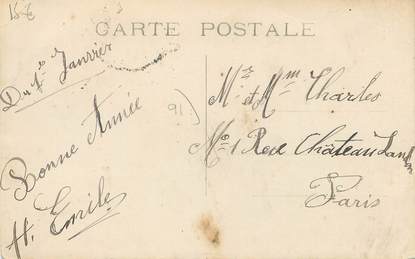 15€
CARTE POSTALE
Du 1er Janvier
Bonne Année
H. Emile
91)
Mr et Mme Charles
No 1 Rue Château Landon
Paris